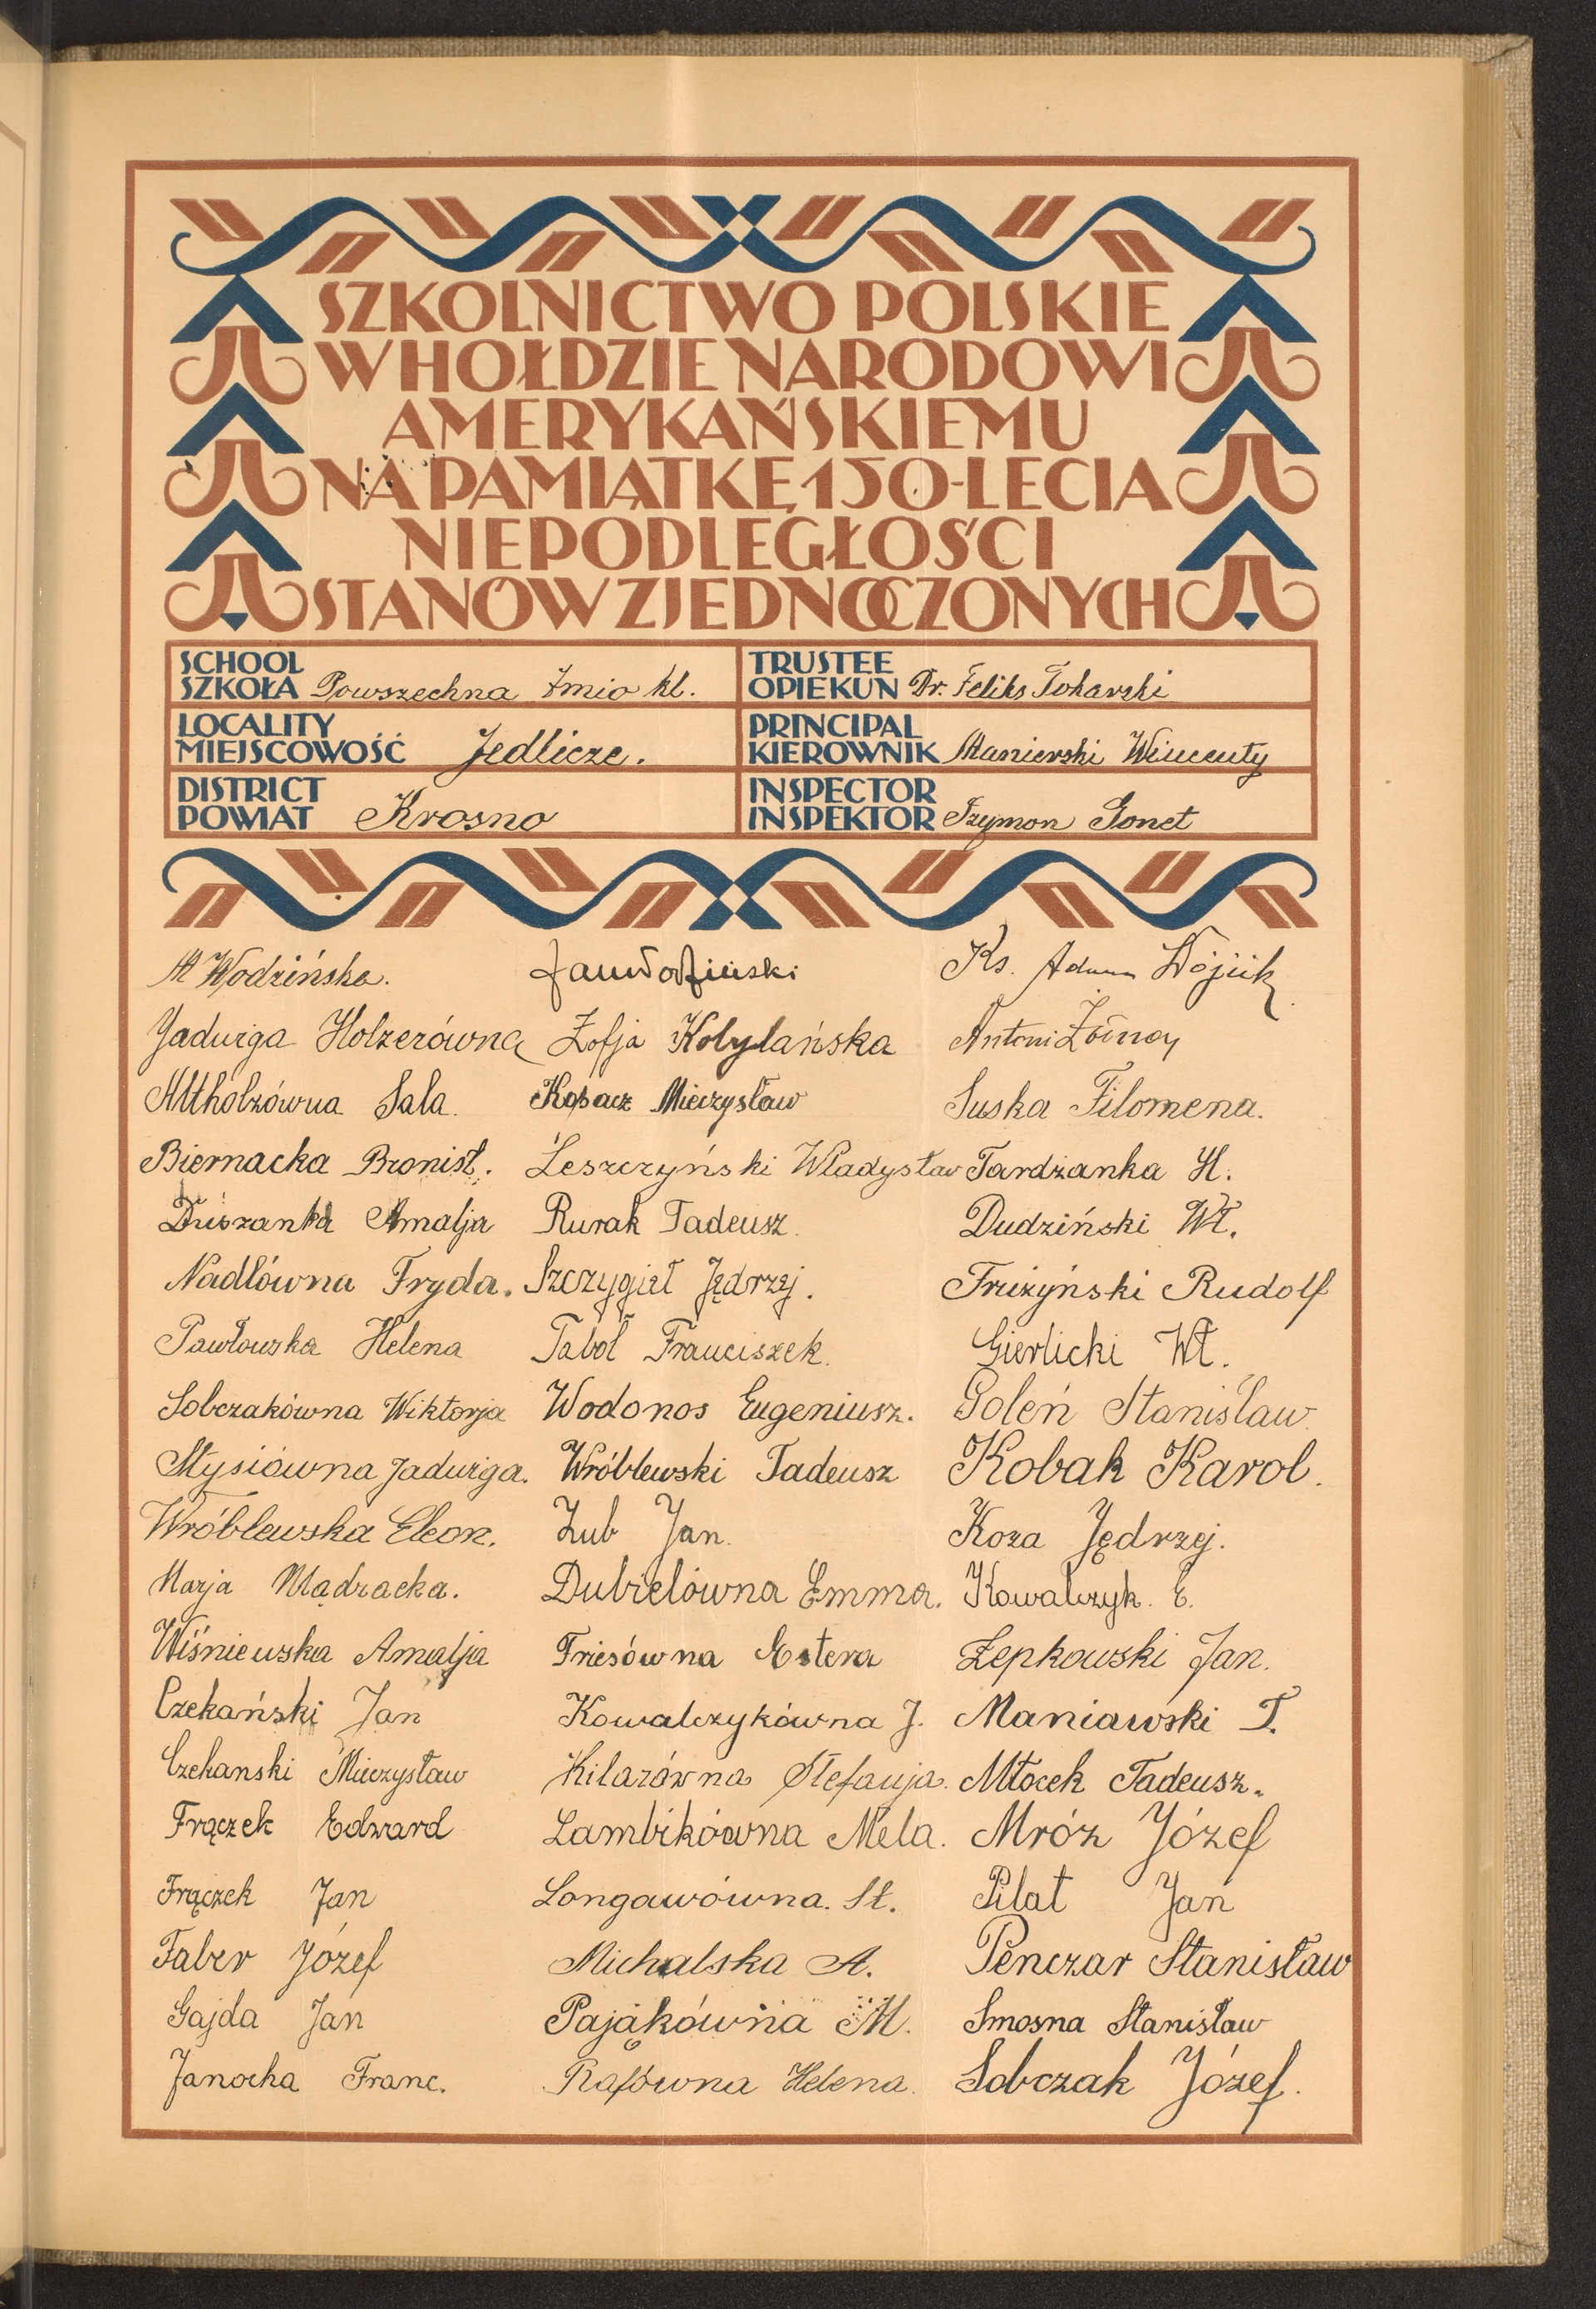 SZKOLNICTWO POLSKIE
W HOŁDZIE NARODOWI
AMERYKAŃSKIEMU
NA PAMIĄTKĘ 150-LECIA
NIEPODLEGŁOŚCI
STANÓW ZJEDNOCZONYCH
SCHOOL
SZKOŁA Powszechna 7mio kl.
TRUSTEE
OPIEKUN Dr. Feliks Tokarski
LOCALITY
MIEJSCOWOŚĆ Jedlicze.
PRINCIPAL
KIEROWNIK Manierski Wincenty
DISTRICT
POWIAT Krosno
INSPECTOR
INSPEKTOR Szymon Gonet
M Wodzińska.
Jadwiga Holzerówna
Altholzówna Sala.
Biernacka Bronisł.
Amalja
Nadlówna Fryda.
Pawłowska Helena
Sobczakówna Wiktorja
Stysiówna Jadwiga.
Wróblewska Eleon.
Marja Mądracka.
Wiśniewska Amalja
Czekański Jan
Czekanski Mieczysław
Frączek Edward
Frączek Jan
Faber Józef
Gajda Jan
Janocha Franc.
Jan Wodziński
Zofja Kobylańska
Kopacz Mieczysław
Leszczyński Władysław
Rurak Tadeusz.
Szczygieł Jędrzej.
Tabol Franciszek.
Wodonos Eugeniusz.
Wróblewski Tadeusz
Zub Jan.
Dubielówna Emma.
Friesówna Estera
Kowalczykówna J.
Kilarówna Stefanja.
Lambikówna Mela.
Longawówna. St.
Michalska A.
Pająkówna M.
Rafówna Helena.
Ks. Adam Wójcik
Antoni
Suska Filomena.
Tardzanka H.
Dudziński Wł.
Rudolf
Gierlicki Wł.
Goleń Stanisław.
Kobak Karol.
Koza Jędrzej.
Kowalczyk. E.
Łepkowski Jan.
Maniawski T.
Młocek Tadeusz.
Mróz Józef
Pilat Jan
Penczar Stanisław
Smosna Stanisław
Sobczak Józef.